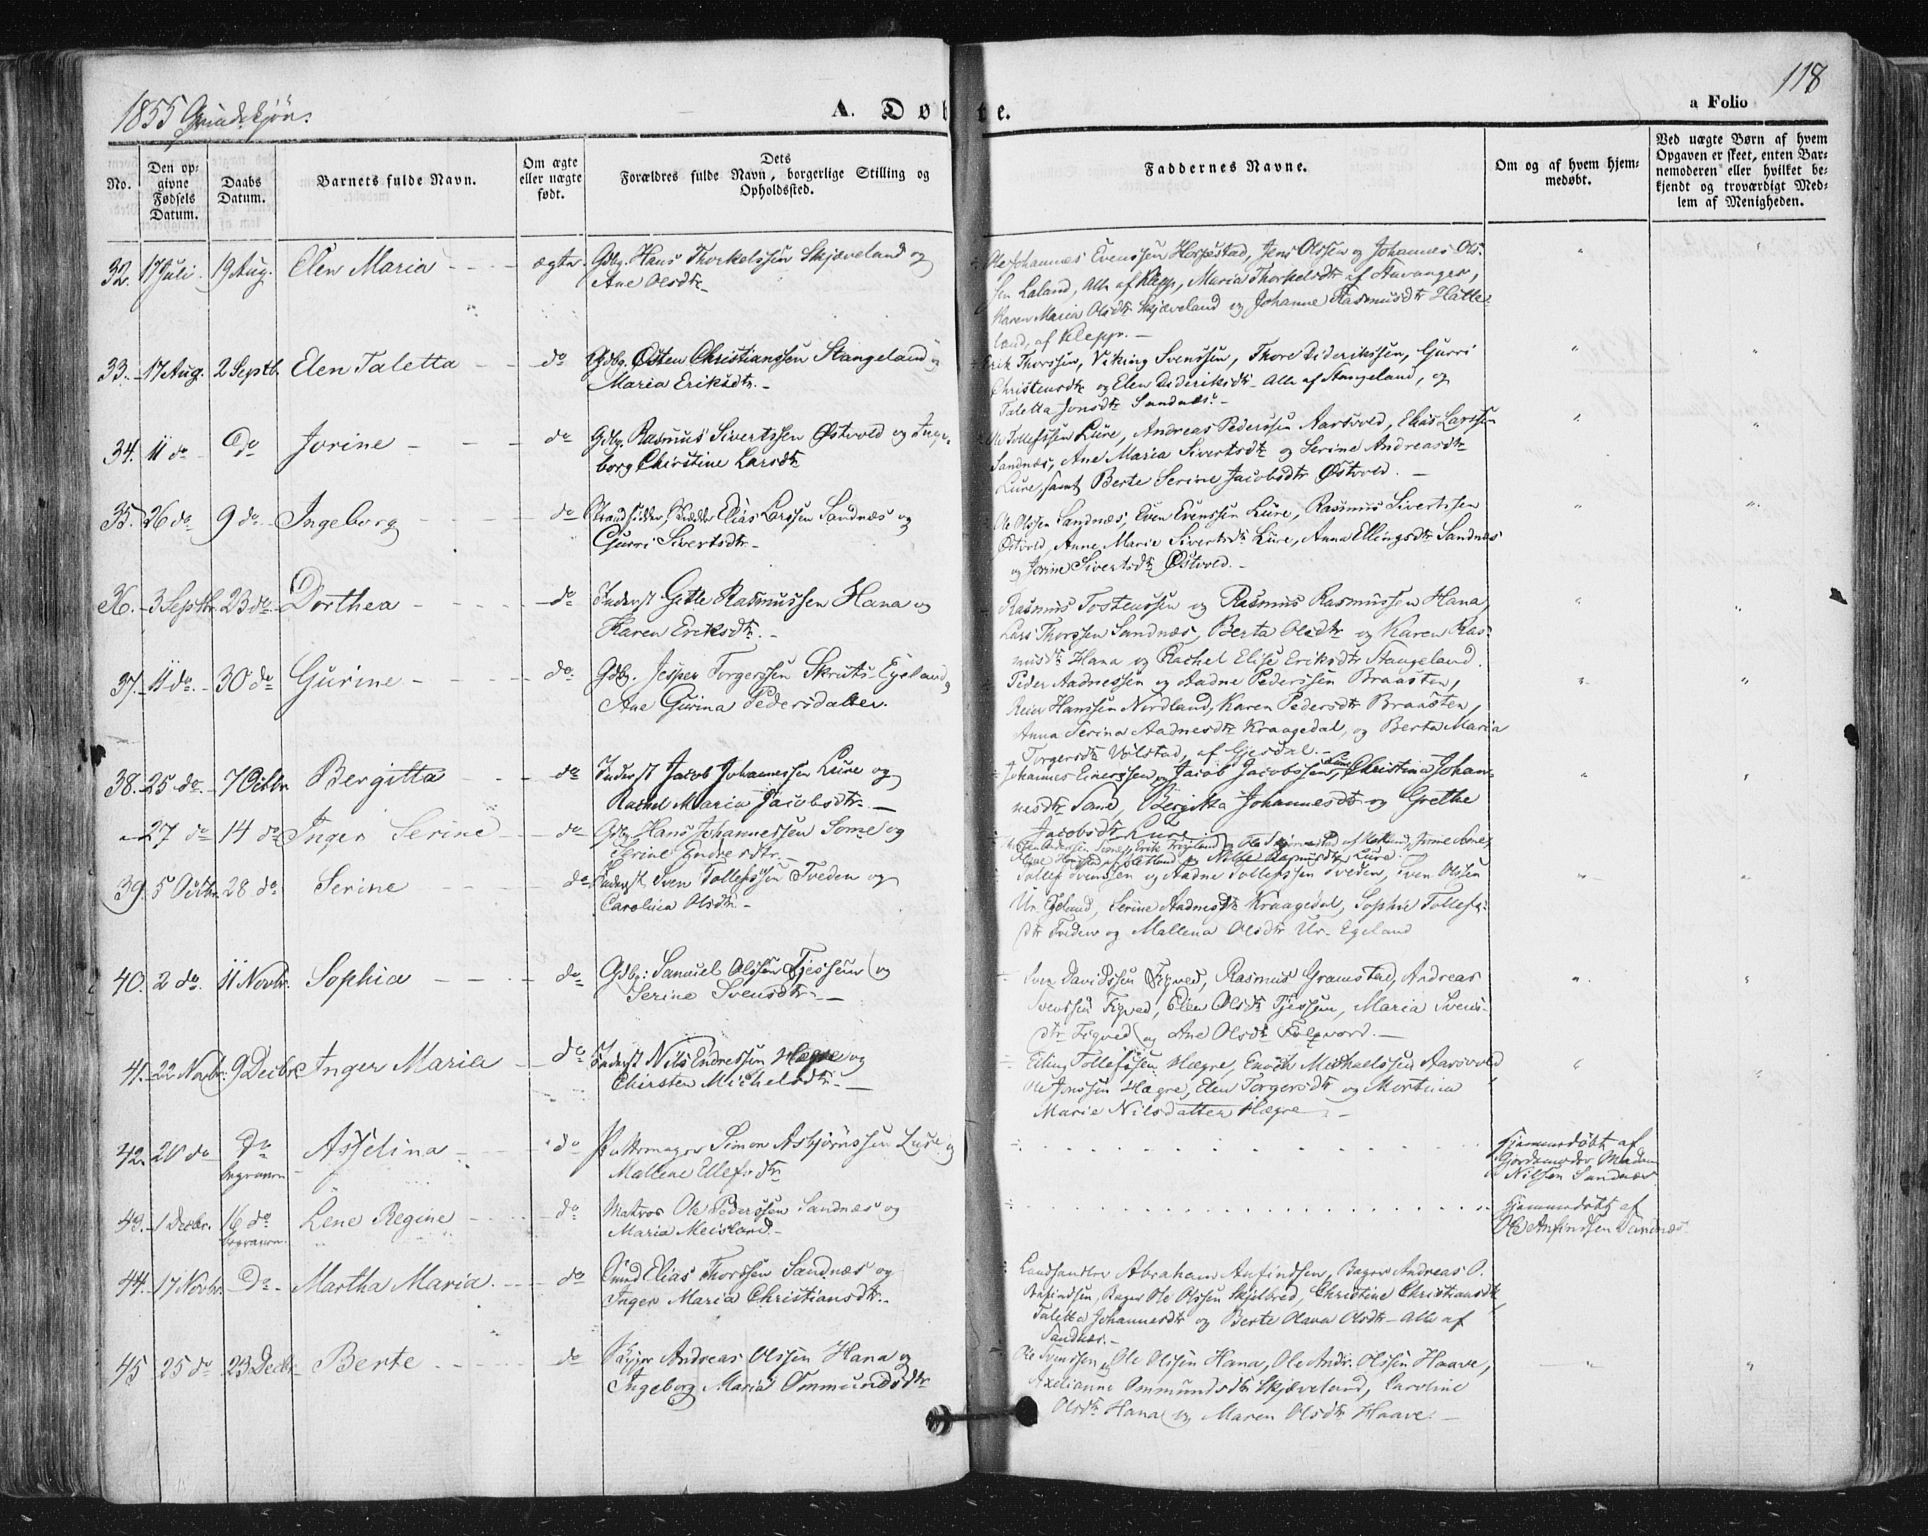 1855 Qvindekjøn.
A. Døbte.
a Folio 118
No.
Den op-
givne
Fødsels
Datum.
Daabs
Datum.
Barnets fulde Navn.
Om ægte
eller uægte
født.
Dets
Forældres fulde Navn, borgerlige Stilling og
Opholdssted.
Faddernes Navne.
Om og af hvem hjem-
medøbt.
Ved uægte Børn af hvem
Opgaven er skeet, enten Bar-
nemoderen eller hvilket be-
kjendt og troværdigt Med-
lem af Menigheden.
32. 17 Juli 19 Aug. Elen Maria ægte Gdbg. Hans Thorkelssen Skjæveland og
Ane Olsdtr
Ole Johannes Evenssen Horpestad, Jens Olssen og Johannes Ols-
sen Laland, Alle af Klepp, Maria Thorkelsdtr af Stavanger,
Karen Maria Olsdtr Skjæveland og Johanne Rasmusdtr Hatle-
land, af Klepp.
33. 17 Aug. 2 Septb. Elen Taletta do Gdbg. Østen Christianssen Stangeland og
Maria Eriksdtr.
Erik Thorssen, Viking Svenssen, Thore Diderikssen, Gurri
Christensdtr og Elen Dideriksdtr Alle af Stangeland, og
Taletta Jonsdtr Sandnæs.
34. 11 do Do Jorine do Gdbg. Rasmus Sivertssen Østvold og Inge-
borg Christine Larsdtr
Ole Tollefssen Lure, Andreas Pederssen Aarsvold, Elias Larssen
Sandnæs, Ane Maria Sivertsdtr og Serine Andreasdtr
Lure, samt Berte Serine Jacobsdtr Østvold.
35. 26 do 9 do Ingeborg do Strandsidder Elias Larssen Sandnæs og
Gurri Sivertsdtr
Ole Olssen Sandnæs, Even Evenssen Lure, Rasmus Sivertssen
Østvold, Anne Marie Sivertsdtr Lure, Anna Ellingsdtr Sandnæs
og Jorine Sivertsdtr Østvold.
36. 3 Septbr 23 do Dorthea do Inderst Gitle Rasmussen Hana og
Karen Eriksdtr.
Rasmus Tostenssen og Rasmus Rasmussen Hana,
Lars Thorssen Sandnæs, Berta Olsdtr og Karen Ras-
musdtr Hana og Rachel Elise Eriksdtr Stangeland.
37. 11 do 30 do Gurine do Gdbg. Jesper Torgerssen Skruts-Egeland og
Ane Gurina Pedersdatter.
Peder Aadnessen og Aadne Pederssen Braasten,
Reier Hanssen Nordland, Karen Pedersdtr Braasten,
Anna Serina Aadnesdtr Kraagedal, og Berta Maria
Torgersdtr Volstad, af Gjesdal.
38. 25 do 7 Octbr. Bergitta do Inderst Jacob Johannessen Lure og
Rachel Maria Jacobsdtr.
Johannes Einerssen og Jacob Jacobssen Lure, Christina Johan-
nesdtr Some, Bergitta Johannesdtr og Grethe
Jacobsdtr Lure.
27 do 14 do Inger Serine do Gdbg. Hans Johannessen Some og
Serine Endresdtr.
39. 5 Octbr. 28 do Serine do Inderst Sven Tollefssen Tveden og
Carolina Olsdtr
Tollef Svenssen og Aadne Tollefssen Tveden, Sven Olssen
Ur. Egeland, Serine Aadnesdtr Kraagedal, Sophie Tollefs-
dtr Tveden og Mallena Olsdtr Ur-Egeland
40. 2 do 11 Novbr. Sophia do Gdbg: Samuel Olssen Tjessem og
Serine Svensdtr
Sven Davidssen Figved, Rasmus Gramstad, Andreas
Svenssen Figved, Elen Olsdtr Tjessem, Maria Svens-
dtr Figved og Ane Olsdtr Folqvord.
41. 22 Novbr. 9 Decbr. Inger Maria do Inderst Nils Endressen Hægre og
Chirsten Michelsdtr.
Elling Tollefssen Hægre, Enock Michaelssen Aarsvold
Ole Jonssen Hægre, Elen Torgersdtr og Mortina
Marie Nilsdatter Hægre
42. 20 do Do begraven Asselina do Pottemager Simon Asbjørnssen Lure og
Mallene Ellefsdtr
Hjemmedøbt af
Gjordemoder Madam
Nilsen Sandnæs
43. 1 Decbr. 16 do begraven Lene Regine do Matros Ole Pederssen Sandnæs og
Maria Meisland.
Hjemmedøbt af
Ole Anfindsen Sandnæs
44. 17 Novbr. Do Martha Maria do Elias Thorssen Sandnæs og
Inger Maria Christiansdtr.
Landhandler Abraham Anfindsen, Bager Andreas O.
Anfindsen, Bager Ole Olssen Skjelbred, Christine Christiansdtr
Taletta Johannesdtr og Berte Olava Olsdtr Alle af
Sandnæs.
45 25 do 23 Decbr. Berte do Andreas Olssen Hana og
Ingeborg Maria Ommundsdtr
Ole Svenssen og Ole Olssen Hana, Ole Andr. Olssen Haave,
Axelianne Ommundsdtr Skjæveland, Caroline
Olsdtr Hana og Maren Olsdtr Haave.